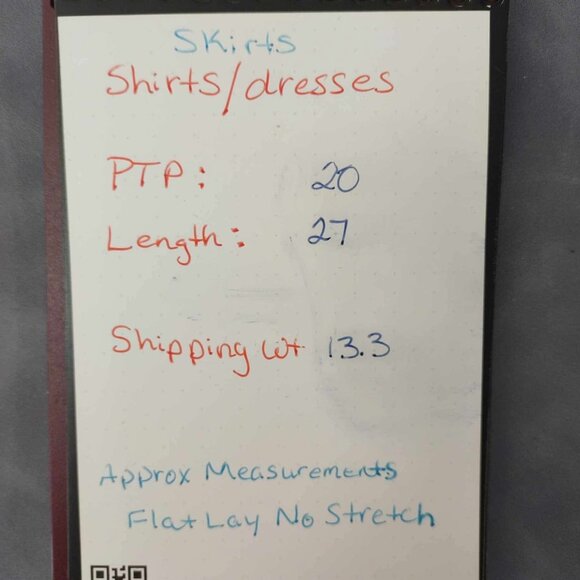 Skirts
Shirts/dresses
PTP: 20
Length: 27
Shipping wt 13.3
Approx Measurements
Flat Lay No Stretch